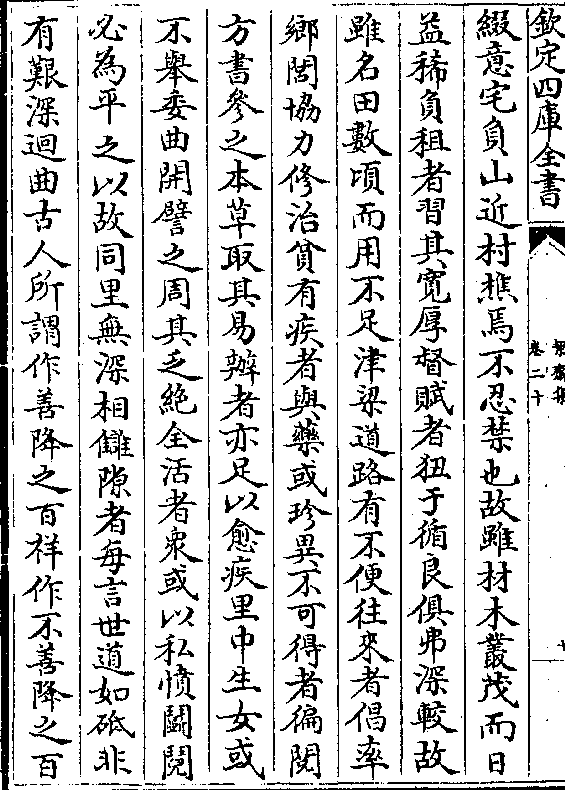 欽定四庫全書
卷二十
綴意宅負山近村樵焉不忍禁也故雖材木叢茂而日
益稀負租者習其寛厚督賦者狃于循良俱弗深較故
雖名田數頃而用不足津梁道路有不便往來者倡率
鄉閭協力修治貧有疾者與藥或珍異不可得者徧閲
方書參之本草取其易辦者亦足以愈疾里中生女或
不舉委曲開譬之周其乏絶全活者衆或以私憤鬭鬩
必為平之以故同里無深相讎隙者每言世道如砥非
有艱深迴曲古人所謂作善降之百祥作不善降之百